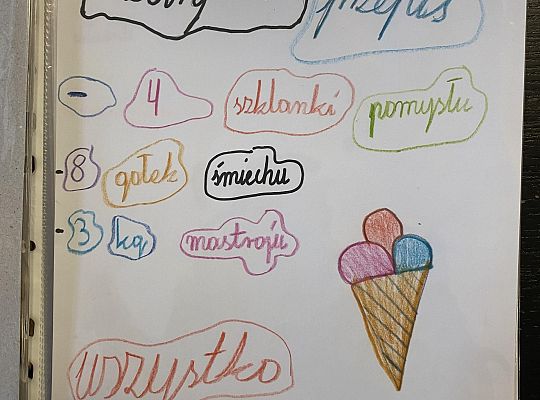 przepis
- 4 szklanki pomysłu
- 8 gałek śmiechu
- 3 kg nastroju
wszystko